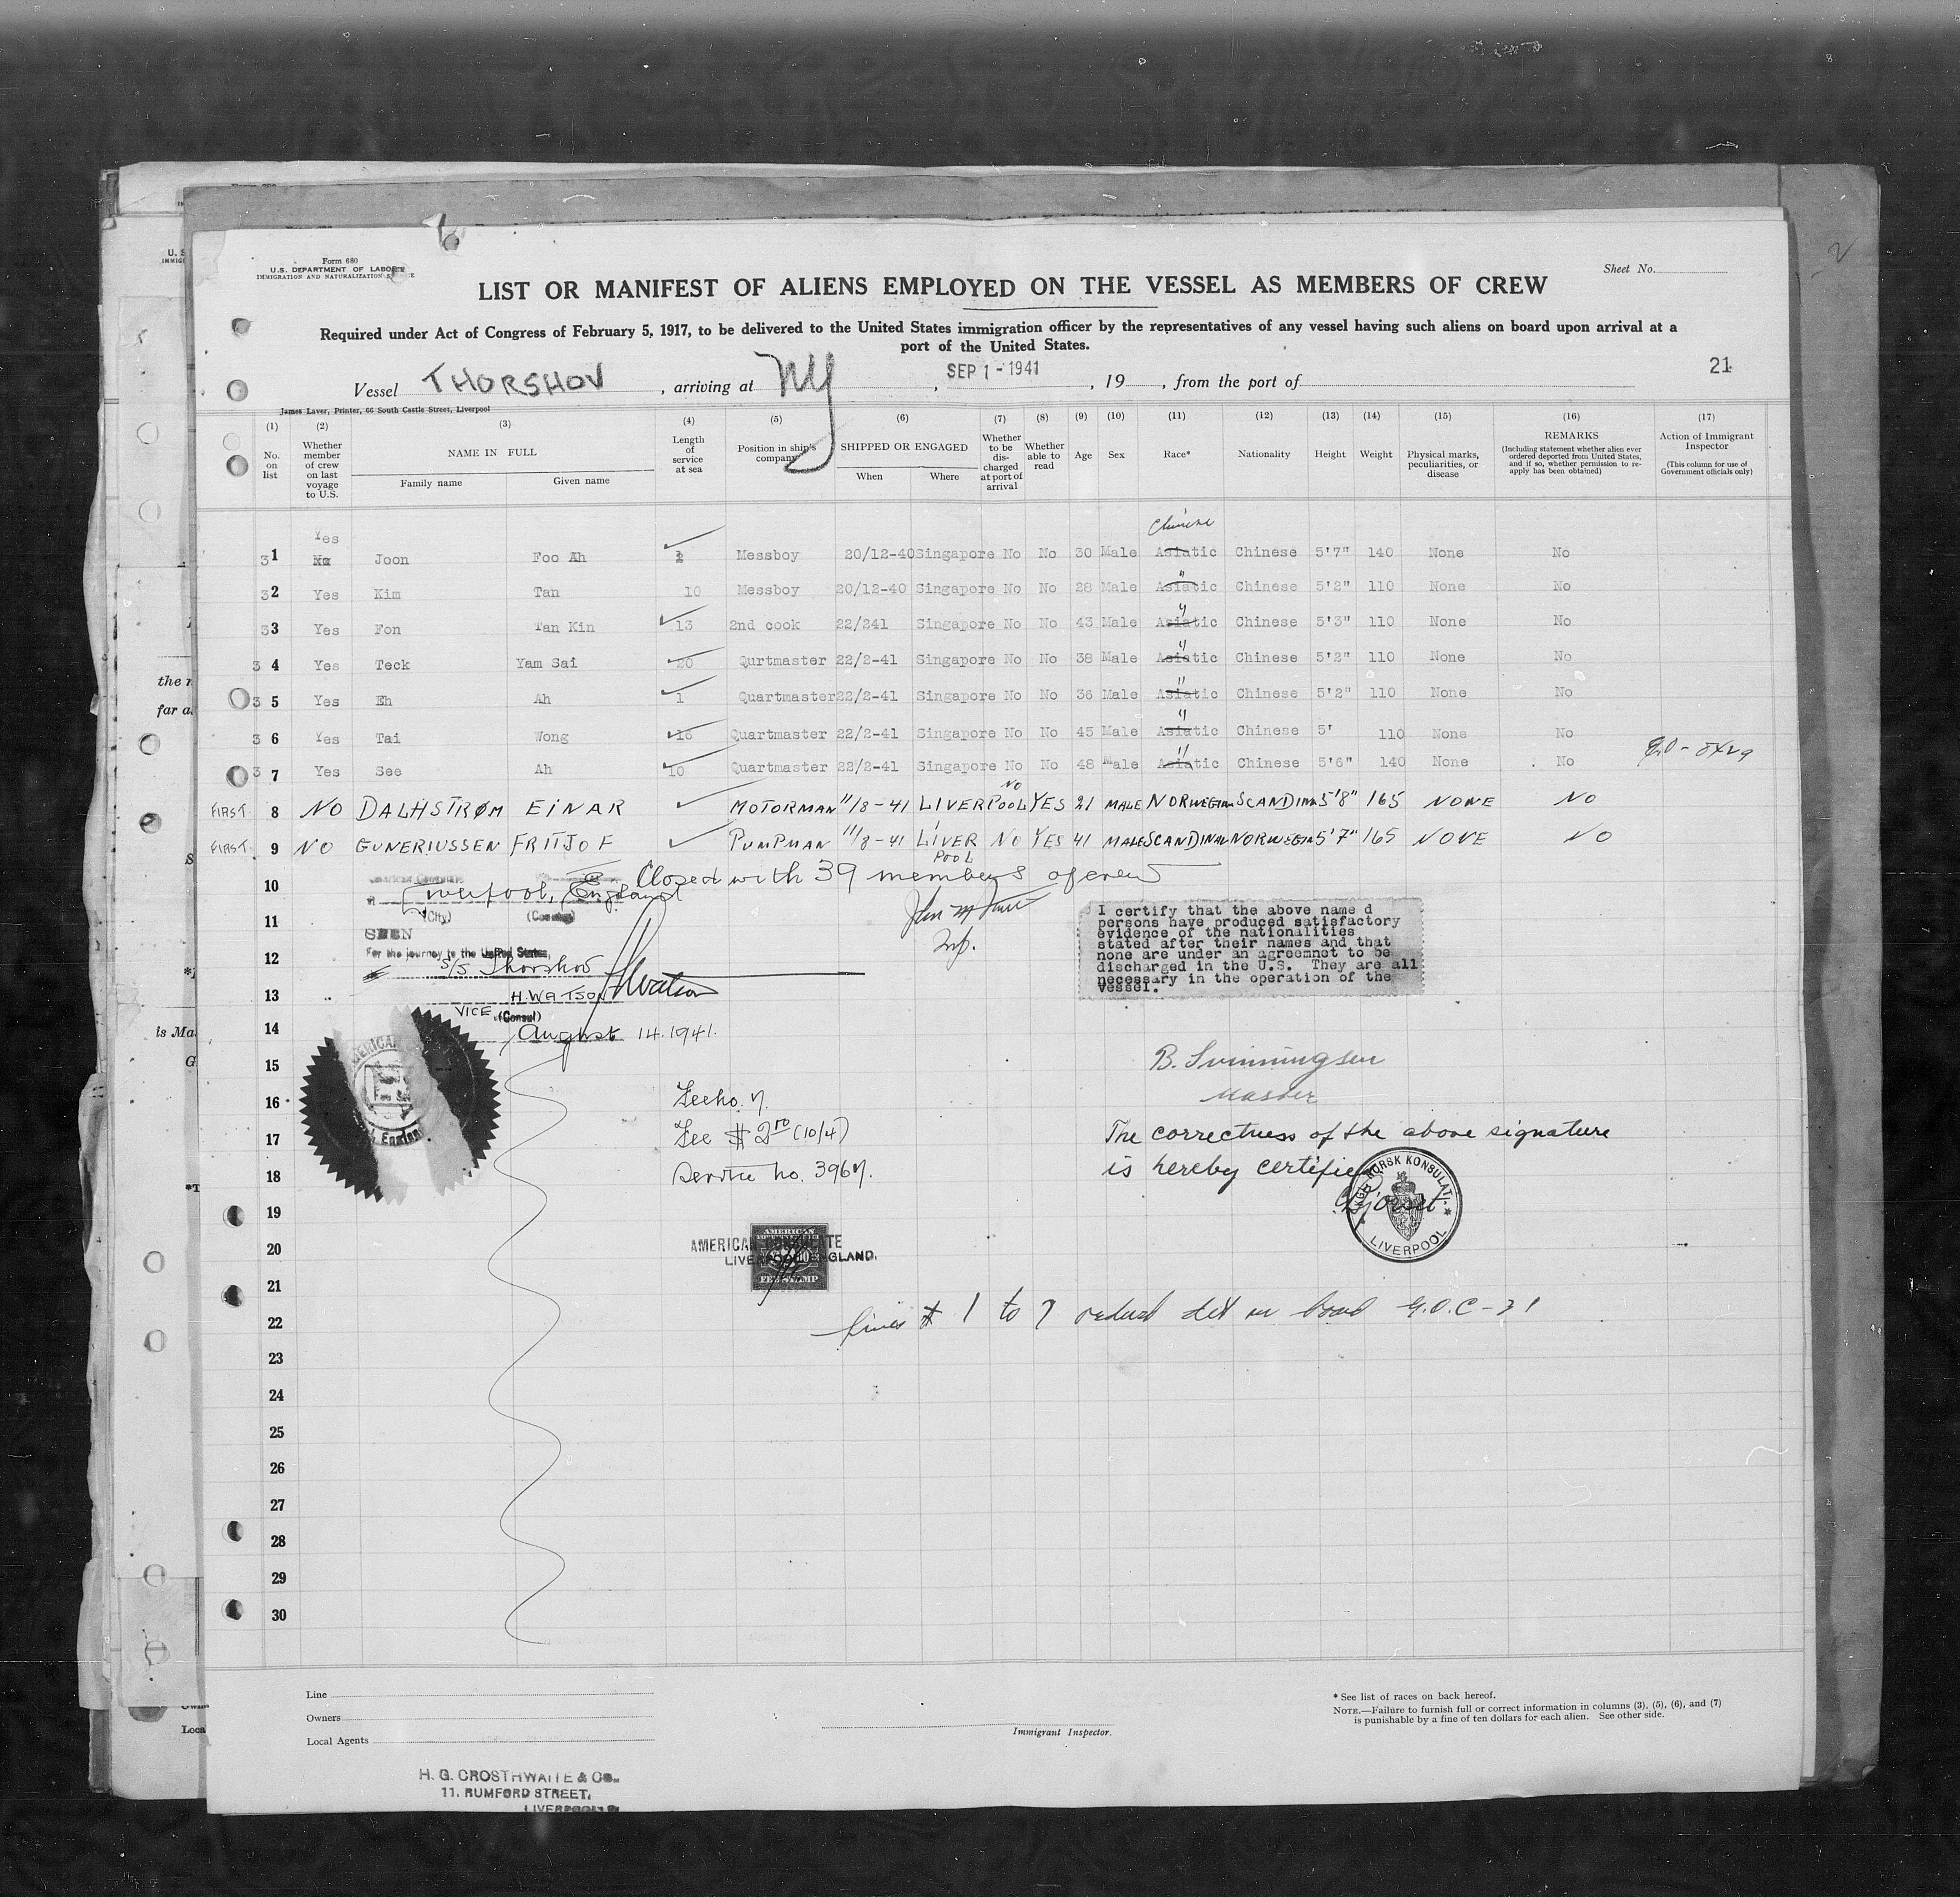 Form 680
U.S. DEPARTMENT OF LABOR
IMMIGRATION AND NATURALIZATION SERVICE
Sheet No.
LIST OR MANIFEST OF ALIENS EMPLOYED ON THE VESSEL AS MEMBERS OF CREW
Required under Act of Congress of February 5, 1917, to be delivered to the United States immigration officer by the representatives of any vessel having such aliens on board upon arrival at a
port of the United States.
Vessel THORSHOV, arriving at NY, SEP 1 - 1941, 19, from the port of
21
James Laver, Printer, 66 South Castle Street, Liverpool
(1) (2) (3) (4) (5) (6) (7) (8) (9) (10) (11) (12) (13) (14) (15) (16) (17)
No. on list
Whether member of crew on last voyage to U.S.
NAME IN FULL
Family name Given name
Length of service at sea
Position in ship's company
SHIPPED OR ENGAGED
When Where
Whether to be discharged at port of arrival
Whether able to read
Age
Sex
Race*
Nationality
Height
Weight
Physical marks, peculiarities, or disease
REMARKS
(Including statement whether alien ever ordered deported from United States, and if so, whether permission to reapply has been obtained)
Action of Immigrant Inspector
(This column for use of Government officials only)
Yes Chinese
31 No Joon Foo Ah 2 Messboy 20/12-40 Singapore No No 30 Male Asiatic Chinese 5'7" 140 None No
32 Yes Kim Tan 10 Messboy 20/12-40 Singapore No No 28 Male Asiatic " Chinese 5'2" 110 None No
33 Yes Fon Tan Kin 13 2nd cook 22/241 Singapore No No 43 Male Asiatic " Chinese 5'3" 110 None No
3 4 Yes Teck Yam Sai 20 Qurtmaster 22/2-41 Singapore No No 38 Male Asiatic " Chinese 5'2" 110 None No
3 5 Yes Eh Ah 1 Quartmaster 22/2-41 Singapore No No 36 Male Asiatic " Chinese 5'2" 110 None No
3 6 Yes Tai Wong 16 Quartmaster 22/2-41 Singapore No No 45 Male Asiatic " Chinese 5' 110 None No
3 7 Yes See Ah 10 Quartmaster 22/2-41 Singapore No No 48 Male Asiatic " Chinese 5'6" 140 None No
FIRST 8 NO DALHSTRØM EINAR MOTORMAN 11/8-41 LIVERPOOL NO YES 21 MALE NORWEGIAN SCANDINA 5'8" 165 NONE NO
FIRST 9 NO GUNERIUSSEN FRITJOF PUMPMAN 11/8-41 LIVERPOOL NO YES 41 MALE SCANDINAV NORWEGIN 5'7" 165 NONE NO
10
Closed with 39 members of crew
American Consulate
Liverpool, England
(City) (Country)
11
Insp.
SEEN
For the journey to the United States,
12
S/S Thorshov
13
H. WATSON HWatson
VICE (Consul)
14
August 14. 1941.
I certify that the above name d
persons have produced satisfactory
evidence of the nationalities
stated after their names and that
none are under an agreemnet to be
discharged in the U.S. They are all
necessary in the operation of the
vessel.
15
B. Svinningsen
Master
16
17
Fee $ 2 00 (10/4)
The correctness of the above signature
is hereby certified
18
Service no. 3967.
19
KGL. NORSK KONSULAT
LIVERPOOL
20
AMERICAN CONSULATE
LIVERPOOL, ENGLAND.
AMERICAN
FEE STAMP
21
22
lines # 1 to 7
23
24
25
26
27
28
29
30
Line
Owners
Local Agents
Immigrant Inspector.
* See list of races on back hereof.
NOTE.—Failure to furnish full or correct information in columns (3), (5), (6), and (7)
is punishable by a fine of ten dollars for each alien. See other side.
H. G. CROSTHWAITE & Co.
11. RUMFORD STREET,
LIVERPOOL